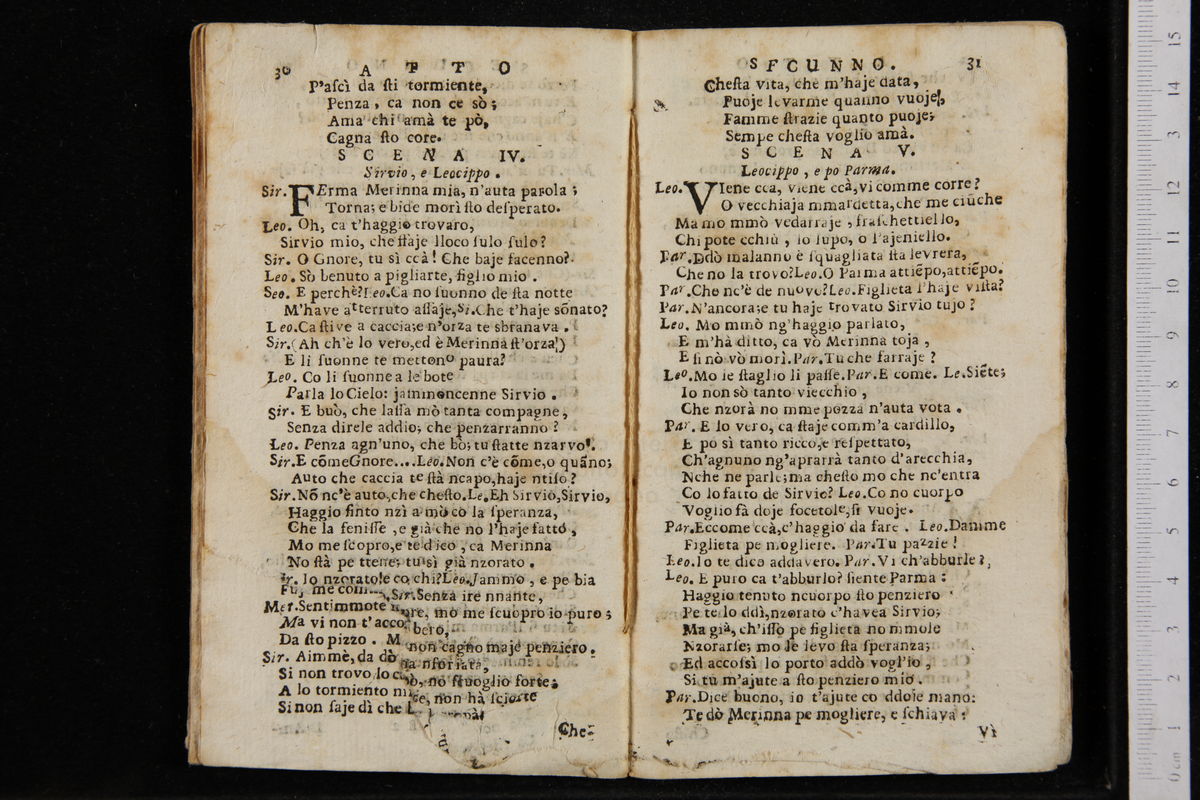 30 A T T O
P'ascì da sti tormiente,
Penza, ca non ce sò;
Ama chi amà te pò,
Cagna sto core.
S C E N A IV.
Sirvio, e Leocippo.
Sir. FErma Merinna mia, n'auta parola;
Torna; e bide morì sto desperato.
Leo. Oh, ca t'haggio trovaro,
Sirvio mio, che staje lloco sulo sulo?
Sir. O Gnore, tu sì ccà! Che baje facenno?
Leo. Sò benuto a pigliarte, figlio mio.
Seo. E perchè? Leo. Ca no suonno de sta notte
M'have atterruto assaje, Si. Che t'haje sōnato?
Leo. Ca stive a caccia; e n'orza te sbranava.
Sir. (Ah ch'è lo vero, ed è Merinna st'orza!)
E li suonne te mettono paura?
Leo. Co li suonne a le bote
Parla lo Cielo: jammoncenne Sirvio.
Sir. E buò, che lassa mò tanta compagne,
Senza direle addio; che penzarranno?
Leo. Penza agn'uno, che bò; tu statte nzarvo.
Sir. E cōme Gnore.... Leo. Non c'è cōme, o quāno;
Auto che caccia te stà ncapo, haje ntiso?
Sir. Nō nc'è auto, che chesto. Le. Eh Sirvio, Sirvio,
Haggio finto nzì a mò co la speranza,
Che la fenisse, e già che no l'haje fatto,
Mo me scopro, e te dico, ca Merinna
No stà pe ttene; tu sì già nzorato.
Sir. Io nzorato! e co chi? Leo. Jammo, e pe bia
Sir. Senza ire nnante,
Mer. Sentimmote
mo me scuopro io puro;
Ma vi non t'acco
Da sto pizzo. M
non cagno maje penziero.
Sir. Aimmè, da dò
Si non trovo lo
nò, nò stuoglio forte;
A lo tormiento
non hà sciorte
Si non saje dì che
Che
SECUNNO. 31
Chesta vita, che m'haje data,
Puoje levarme quanno vuoje!,
Famme strazie quanto puoje;
Sempe chesta voglio amà.
S C E N A V.
Leocippo, e po Parma.
Leo. VIene cca, viene ccà, vi comme corre?
O vecchiaja mmardetta, che me ciuche
Ma mo mmò vedarraje, fraschettiello,
Chi pote cchiù, lo lupo, o l'ajeniello.
Par. Ddò malanno è squagliata sta levrera,
Che no la trovo? Leo. O Parma attiēpo, attiēpo.
Par. Che nc'è de nuovo? Leo. Figlieta l'haje vista?
Par. N'ancora; e tu haje trovato Sirvio tujo?
Leo. Mo mmò ng'haggio parlato,
E m'hà ditto, ca vò Merinna toja,
E si nò vò morì. Par. Tu che farraje?
Leo. Mo le staglio li passe. Par. E come. Le. Siēte;
Io non sò tanto viecchio,
Che nzorà no mme pozza n'auta vota.
Par. E lo vero, ca staje comm'a cardillo,
E po sì tanto ricco, e respettato,
Ch'agnuno ng'aprarrà tanto d'arecchia,
Nche ne parle; ma chesto mo che nc'entra
Co lo fatto de Sirvio? Leo. Co no cuorpo
Voglio fà doje focetole, si vuoje.
Par. Eccome ccà, c'haggio da fare. Leo. Damme
Figlieta pe mogliere. Par. Tu pazzie!
Leo. Io te dico addavero. Par. Vi ch'abburle?
Leo. E puro ca t'abburlo? siente Parma:
Haggio tenuto ncuorpo sto penziero
Pe te lo ddì, nzorato c'havea Sirvio;
Ma già, ch'isso pe figlieta no mmole
Nzorarse; mo le levo sta speranza;
Ed accossì lo porto addò vogl'io,
Si tu m'ajute a sto penziero mio.
Par. Dice buono, io t'ajute co ddoje mano:
Te dò Merinna pe mogliere, e schiava:
Vi